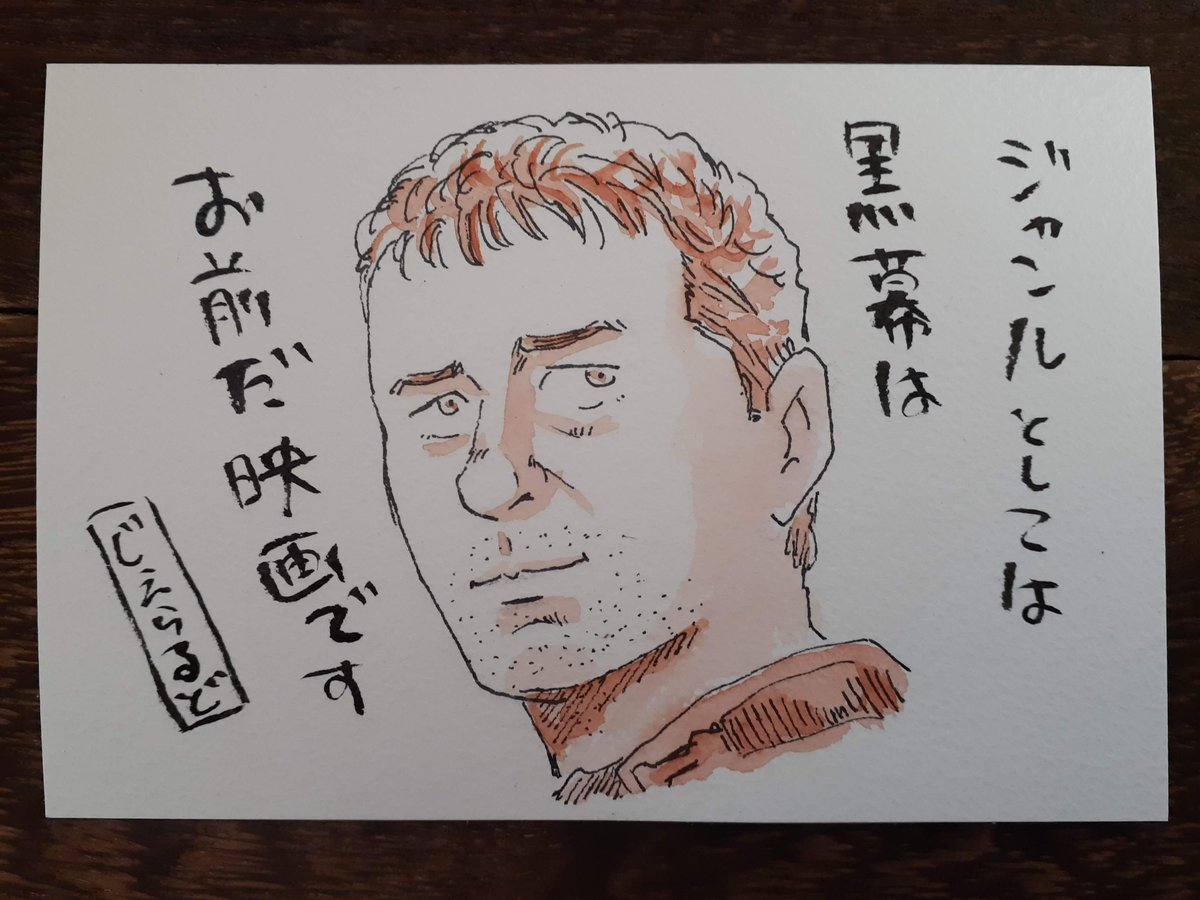 ジャンルとしては
黒幕は
お前だ映画です
じぇらるど